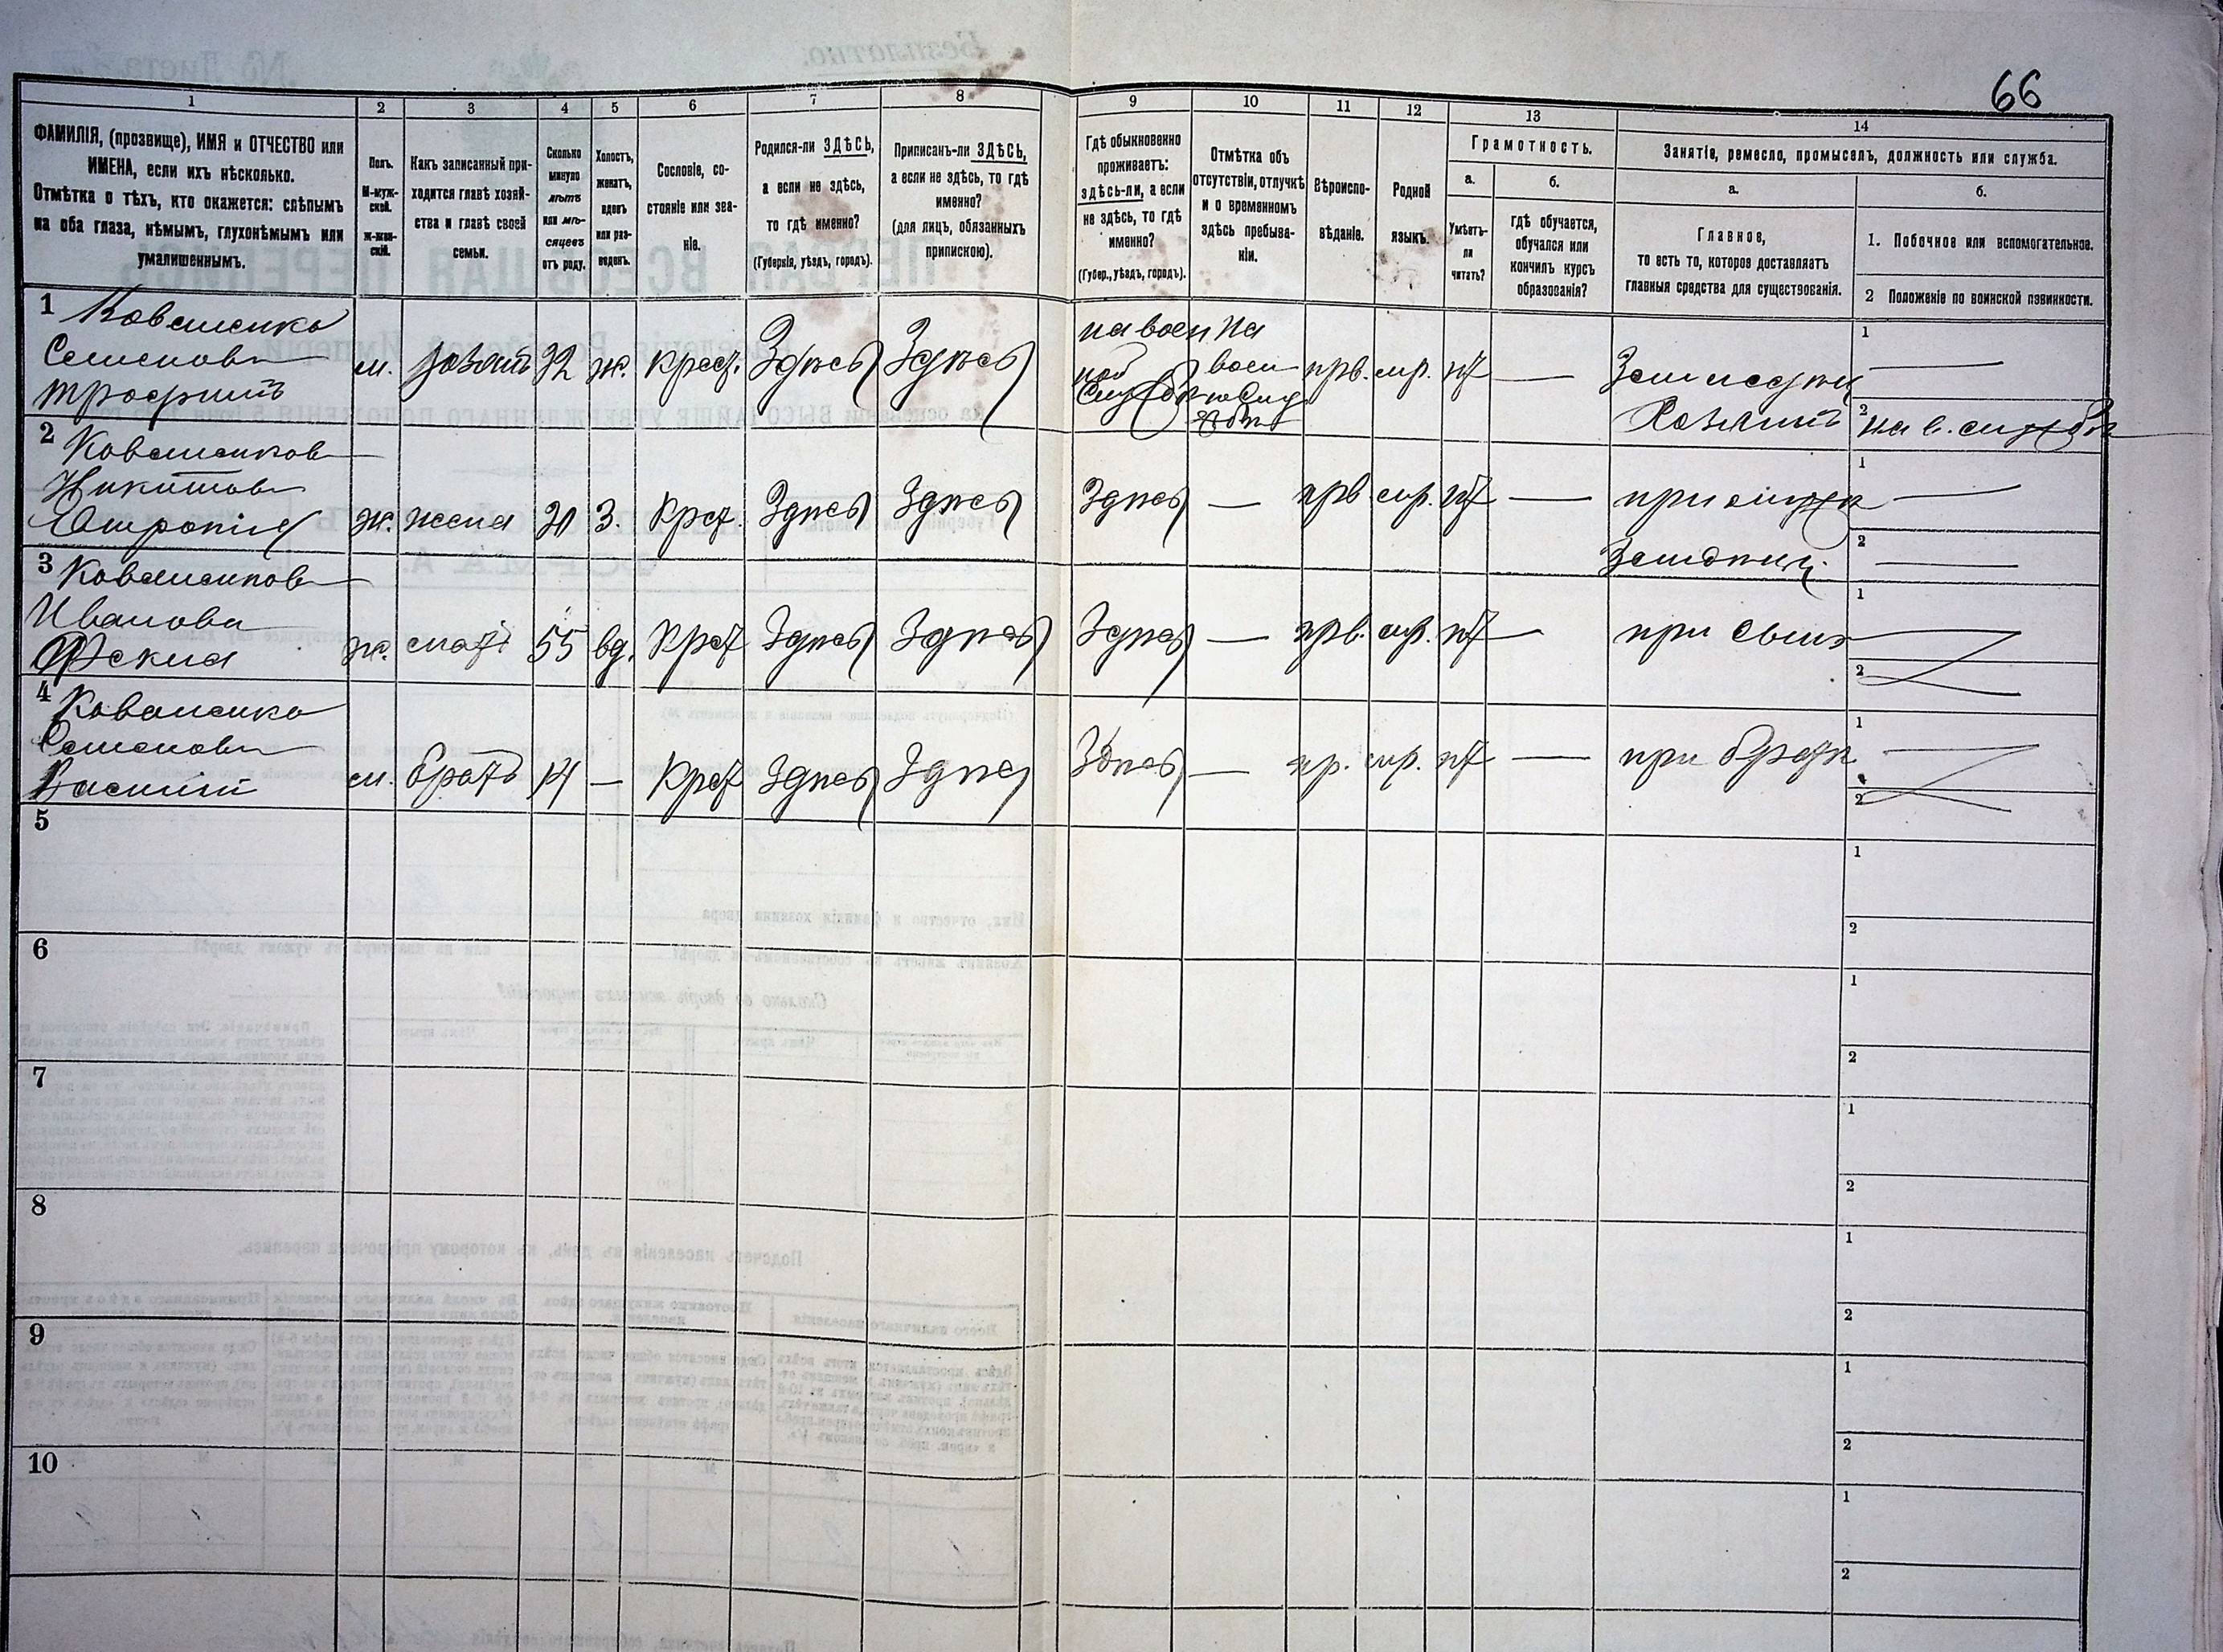 66
1
2
3
4
5
6
7
8
9
10
11
12
13
14
ФАМИЛІЯ, (прозвище), ИМЯ и ОТЧЕСТВО или
ИМЕНА, если ихъ нѣсколько.
Отмѣтка о тѣхъ, кто окажется: слѣпымъ
на оба глаза, нѣмымъ, глухонѣмымъ или
умалишеннымъ.
Полъ.
М-муж-
ской.
Ж-жен-
скій.
Какъ записанный при-
ходится главѣ хозяй-
ства и главѣ своей
семьи.
Сколько
минуло
лѣтъ
или мѣ-
сяцевъ
отъ роду.
Холостъ,
женатъ,
вдовъ
или раз-
веденъ.
Сословіе, со-
стояніе или зва-
ніе.
Родился-ли ЗДѢСЬ,
а если не здѣсь,
то гдѣ именно?
(Губернія, уѣздъ, городъ).
Приписанъ-ли ЗДѢСЬ,
а если не здѣсь, то гдѣ
именно?
(для лицъ, обязанныхъ
припискою).
Гдѣ обыкновенно
проживаетъ:
здѣсь-ли, а если
не здѣсь, то гдѣ
именно?
(Губер., уѣздъ, городъ).
Отмѣтка объ
отсутствіи, отлучкѣ
и о временномъ
здѣсь пребыва-
ніи.
Вѣроиспо-
вѣданіе.
Родной
языкъ.
Грамотность.
а.
Умѣетъ-
ли
читать?
б.
Гдѣ обучается,
обучался или
кончилъ курсъ
образованія?
Занятіе, ремесло, промыселъ, должность или служба.
а.
Главное,
то есть то, которое доставляетъ
главныя средства для существованія.
б.
1. Побочное или вспомогательное.
2 Положеніе по воинской повинности.
1 Коваленко
Семеновъ
Трофимъ
м. хозяинъ 22 ж. крест. Здѣсь Здѣсь
на воен
ной
службѣ
На
воен
ю служ
бѣ
прв. мр. нт —
Земледѣл
Хозяинъ
1 —
2 на в. службѣ
2 Коваленков
Никитова
ж. жена 21 З. Крст. Здѣсь Здѣсь Здѣсь — прв мр. нт —
при мужѣ
1 —
2 —
3 Коваленков
Иванова
ж. мать 55 вд. Крст Здѣсь Здѣсь Здѣсь — прв. мр. нт —
при сынѣ
1
2
4 Коваленко
Семеновъ
Василій
м. братъ 14 — Крст Здѣсь Здѣсь Здѣсь — пр. мр. нт —
при братѣ
1
2
5
1
2
6
1
2
7
1
2
8
1
2
9
1
2
10
1
2